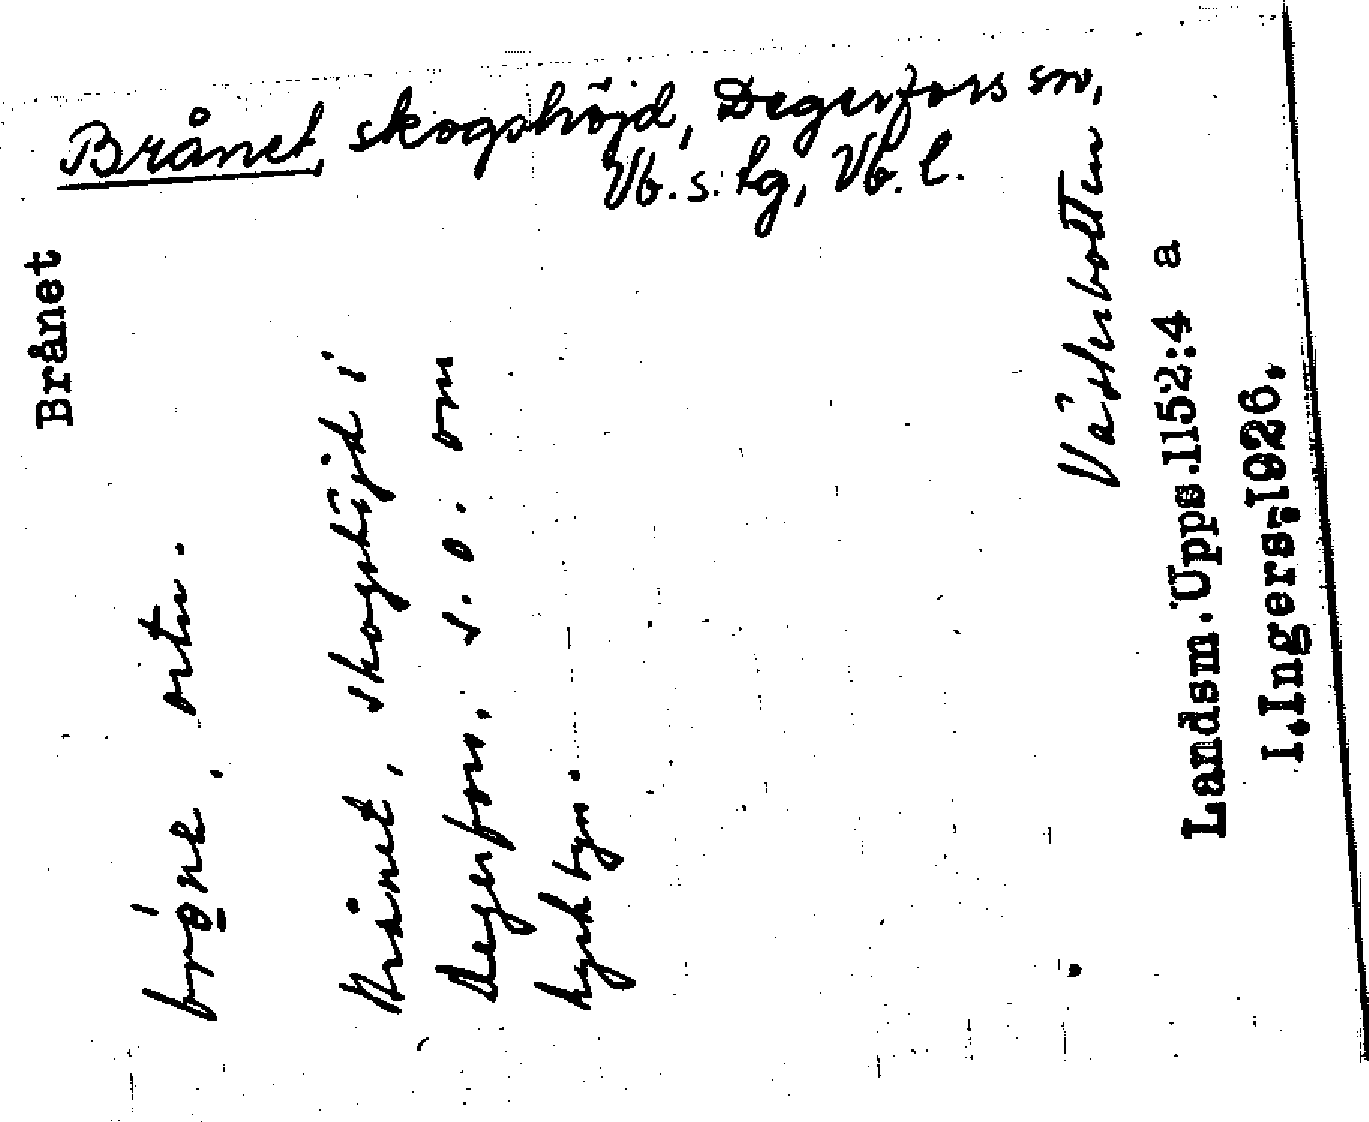 Brånet, skogshöjd, Degerfors sn,
Vb. s. tg, Vb. l.
Brånet
ortn.
Brånet, skogshöjd i
Degerfors, s.o. om
kyrkbyn.
Västerbotten
Landsm. Upps. 1152:4 a
I. Ingers. 1926.